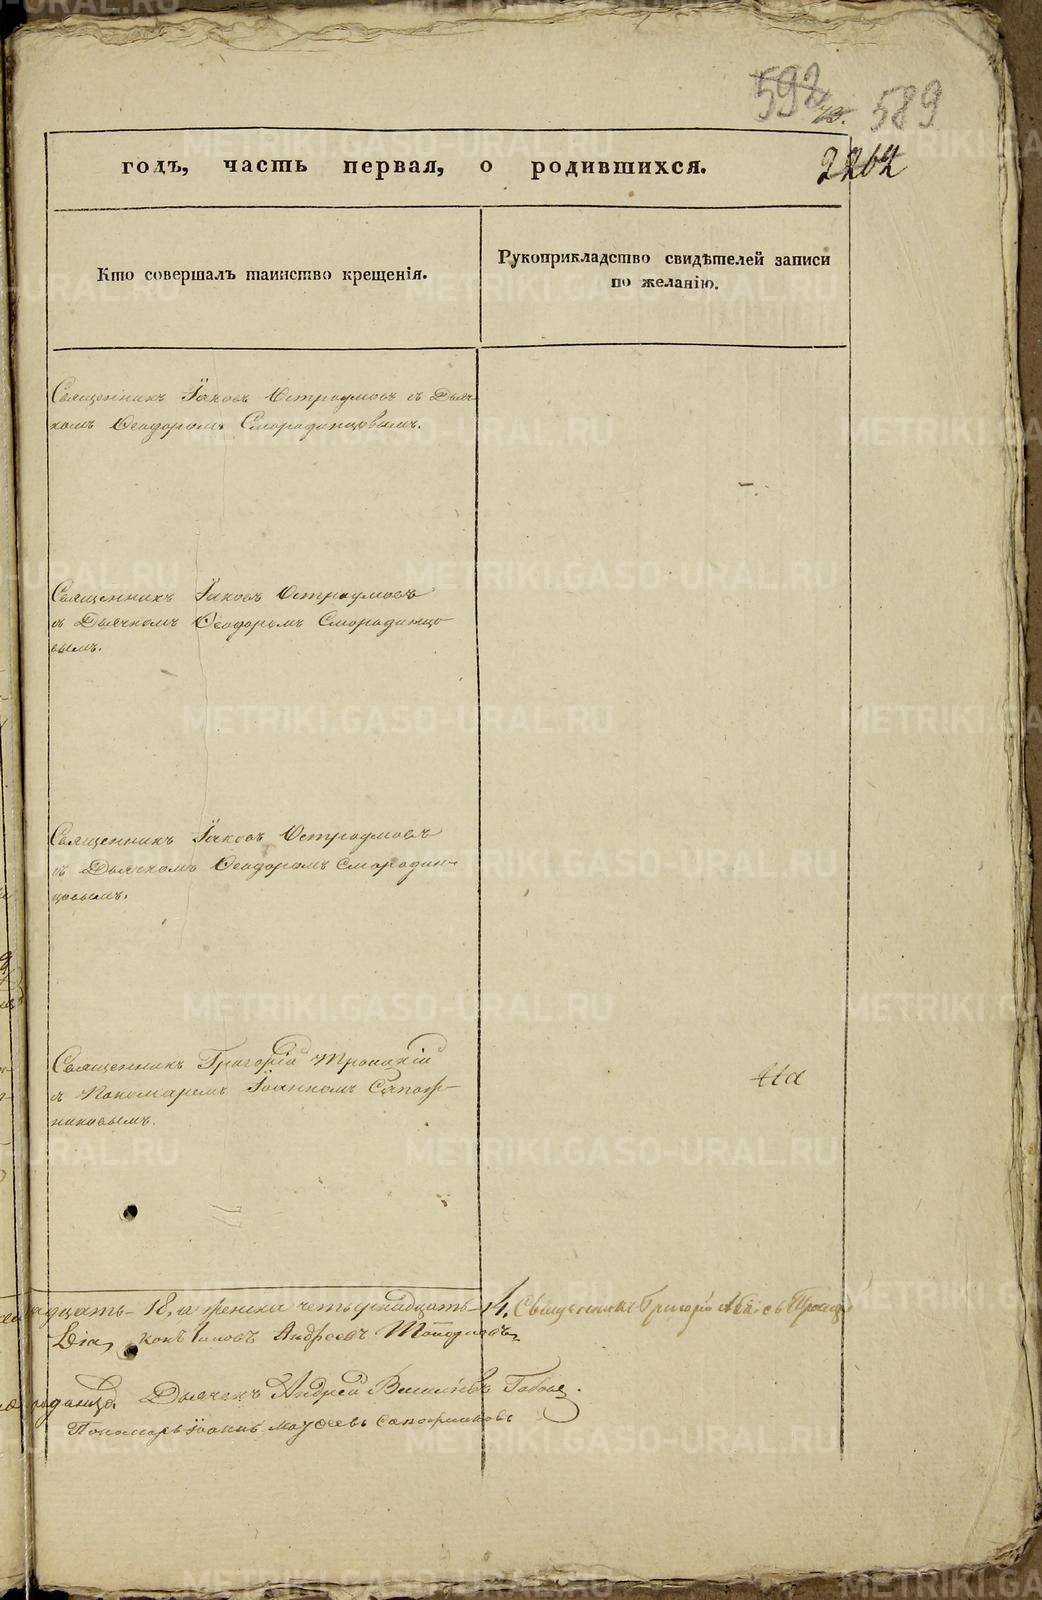 592 589
годъ, часть первая, о родившихся.
2262
Кто совершалъ таинство крещенія.
Рукоприкладство свидѣтелей записи
по желанію.
Священникъ Іаковъ Остроумовъ съ Дьяч-
комъ Ѳеодоромъ Смородинцовымъ.
Священникъ Іаковъ Остроумовъ
съ Дьячкомъ Ѳеодоромъ Смородинцо-
вымъ.
Священникъ Іаковъ Остроумовъ
съ Дьячкомъ Ѳеодоромъ Смородин-
цовымъ.
Священникъ Григорій Троицкій
съ Пономаремъ Іоанномъ Сапож-
никовымъ.
18, и женска четырнадцать 14. Священникъ Григорій
Андреевъ
Дьячекъ Андрей
Пономарь Іоаннъ Сапожниковъ
METRIKI.GASO-URAL.RU